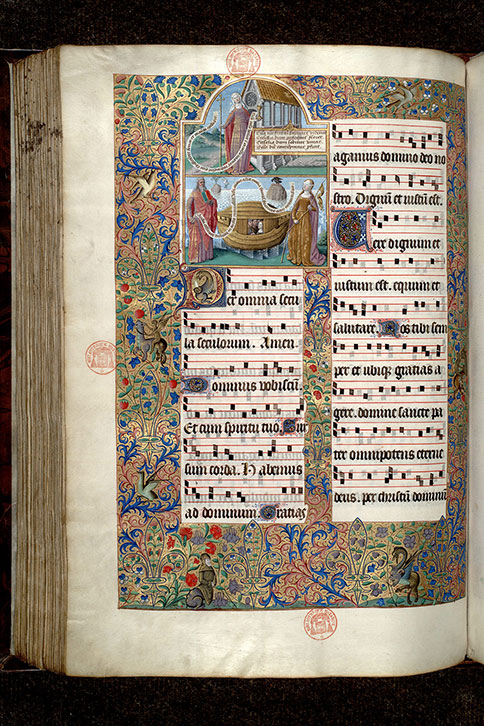 Per omnia secu
la seculorum. Amen
Dominus vobiscũ.
Et cum spiritu tuo. Sur
sum corda. Habemus
ad dominum Gratias
agamus domino deo no
stro. Dignũ et iustũ est.
Vere dignum et
iustum est. equum et
salutare. Nos tibi sem
per et ubiq; gratias a
gere. domine sancte pa
ter omnipotens eterne
deus. per christũ dominũ